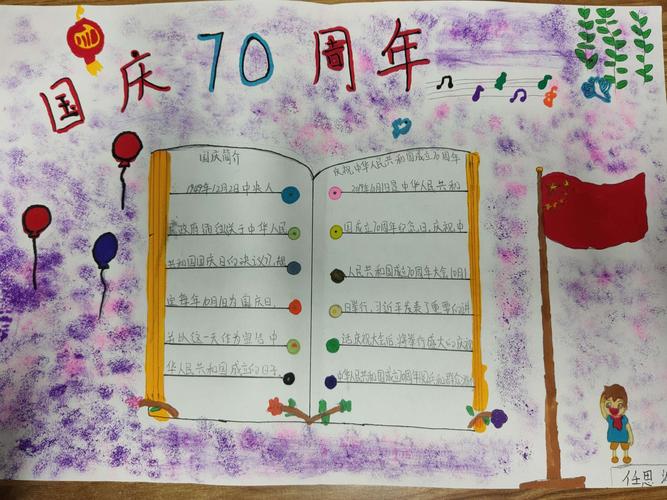 国庆70周年
国庆简介
1949年12月2日中央人
民政府通过《关于中华人民
共和国国庆日的决议》,规
定每年10月1日为国庆日
并以这一天作为宣告中
华人民共和国成立的日子
庆祝中华人民共和国成立70周年
2019年10月1日是中华人民共和
国成立70周年的
日,庆祝中
人民共和国成立70周年大会10月1
日举行,习近平发表了重要的讲
话庆祝大会后,将举行盛大的庆祝
中华人民共和国成立70周年阅兵和群众
任思